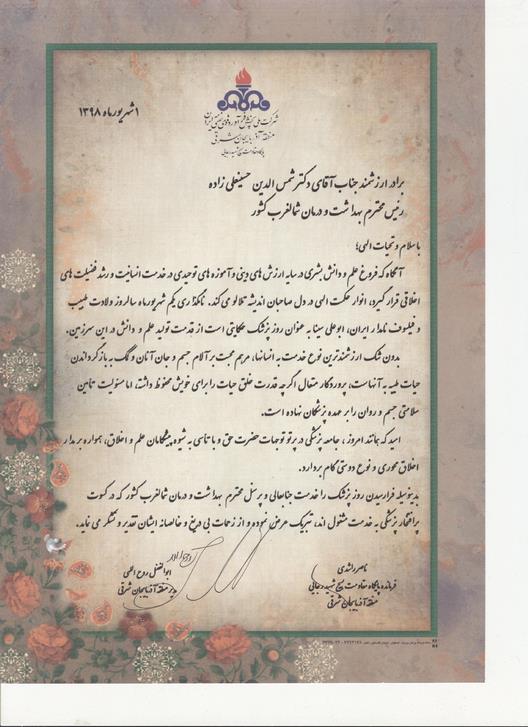 ۱ شهریورماه ۱۳۹۸
شرکت ملی پخش فرآورده‌های نفتی ایران
منطقه آذربایجان شرقی
پایگاه مقاومت بسیج شهید رجایی
برادر ارزشمند جناب آقای دکتر شمس الدین حسینعلی زاده
رئیس محترم بهداشت و درمان شمالغرب کشور
با سلام و تحیات الهی؛
آنگاه که فروغ علم و دانش بشری در سایه ارزش های دینی و آموزه های توحیدی در خدمت انسانیت و رشد فضیلت های
اخلاقی قرار گیرد، انوار حکمت الهی در دل صاحبان اندیشه تلالو می کند. نامگذاری یکم شهریورماه سالروز ولادت طبیب
و فیلسوف نامدار ایران، ابوعلی سینا به عنوان روز پزشک حکایتی است از قدمت تولید علم و دانش در این سرزمین.
بدون شک ارزشمندترین نوع خدمت به انسانها، مرهم محبت بر آلام جسم و جان آنان و کمک به باز گرداندن
حیات طیبه به آنهاست، پروردگار متعال اگر چه قدرت خلق حیات را برای خویش محفوظ داشته، اما مسئولیت تامین
سلامتی جسم و روان را بر عهده پزشکان نهاده است.
امید که همانند امروز، جامعه پزشکی در پرتو توجهات حضرت حق و با تاسی به شیوه پیشگامان علم و اخلاق، همواره بر مدار
اخلاق محوری و نوع دوستی گام بردارد.
بدینوسیله فرارسیدن روز پزشک را خدمت جنابعالی و پرسنل محترم بهداشت و درمان شمالغرب کشور که در کسوت
پرافتخار پزشکی به خدمت مشغول اند، تبریک عرض نموده و از زحمات بی دریغ و خالصانه ایشان تقدیر و تشکر می نماید.
ناصر راشدی
فرمانده پایگاه مقاومت بسیج شهید رجایی
منطقه آذربایجان شرقی
ابوالفضل روح اللهی
مدیر منطقه آذربایجان شرقی